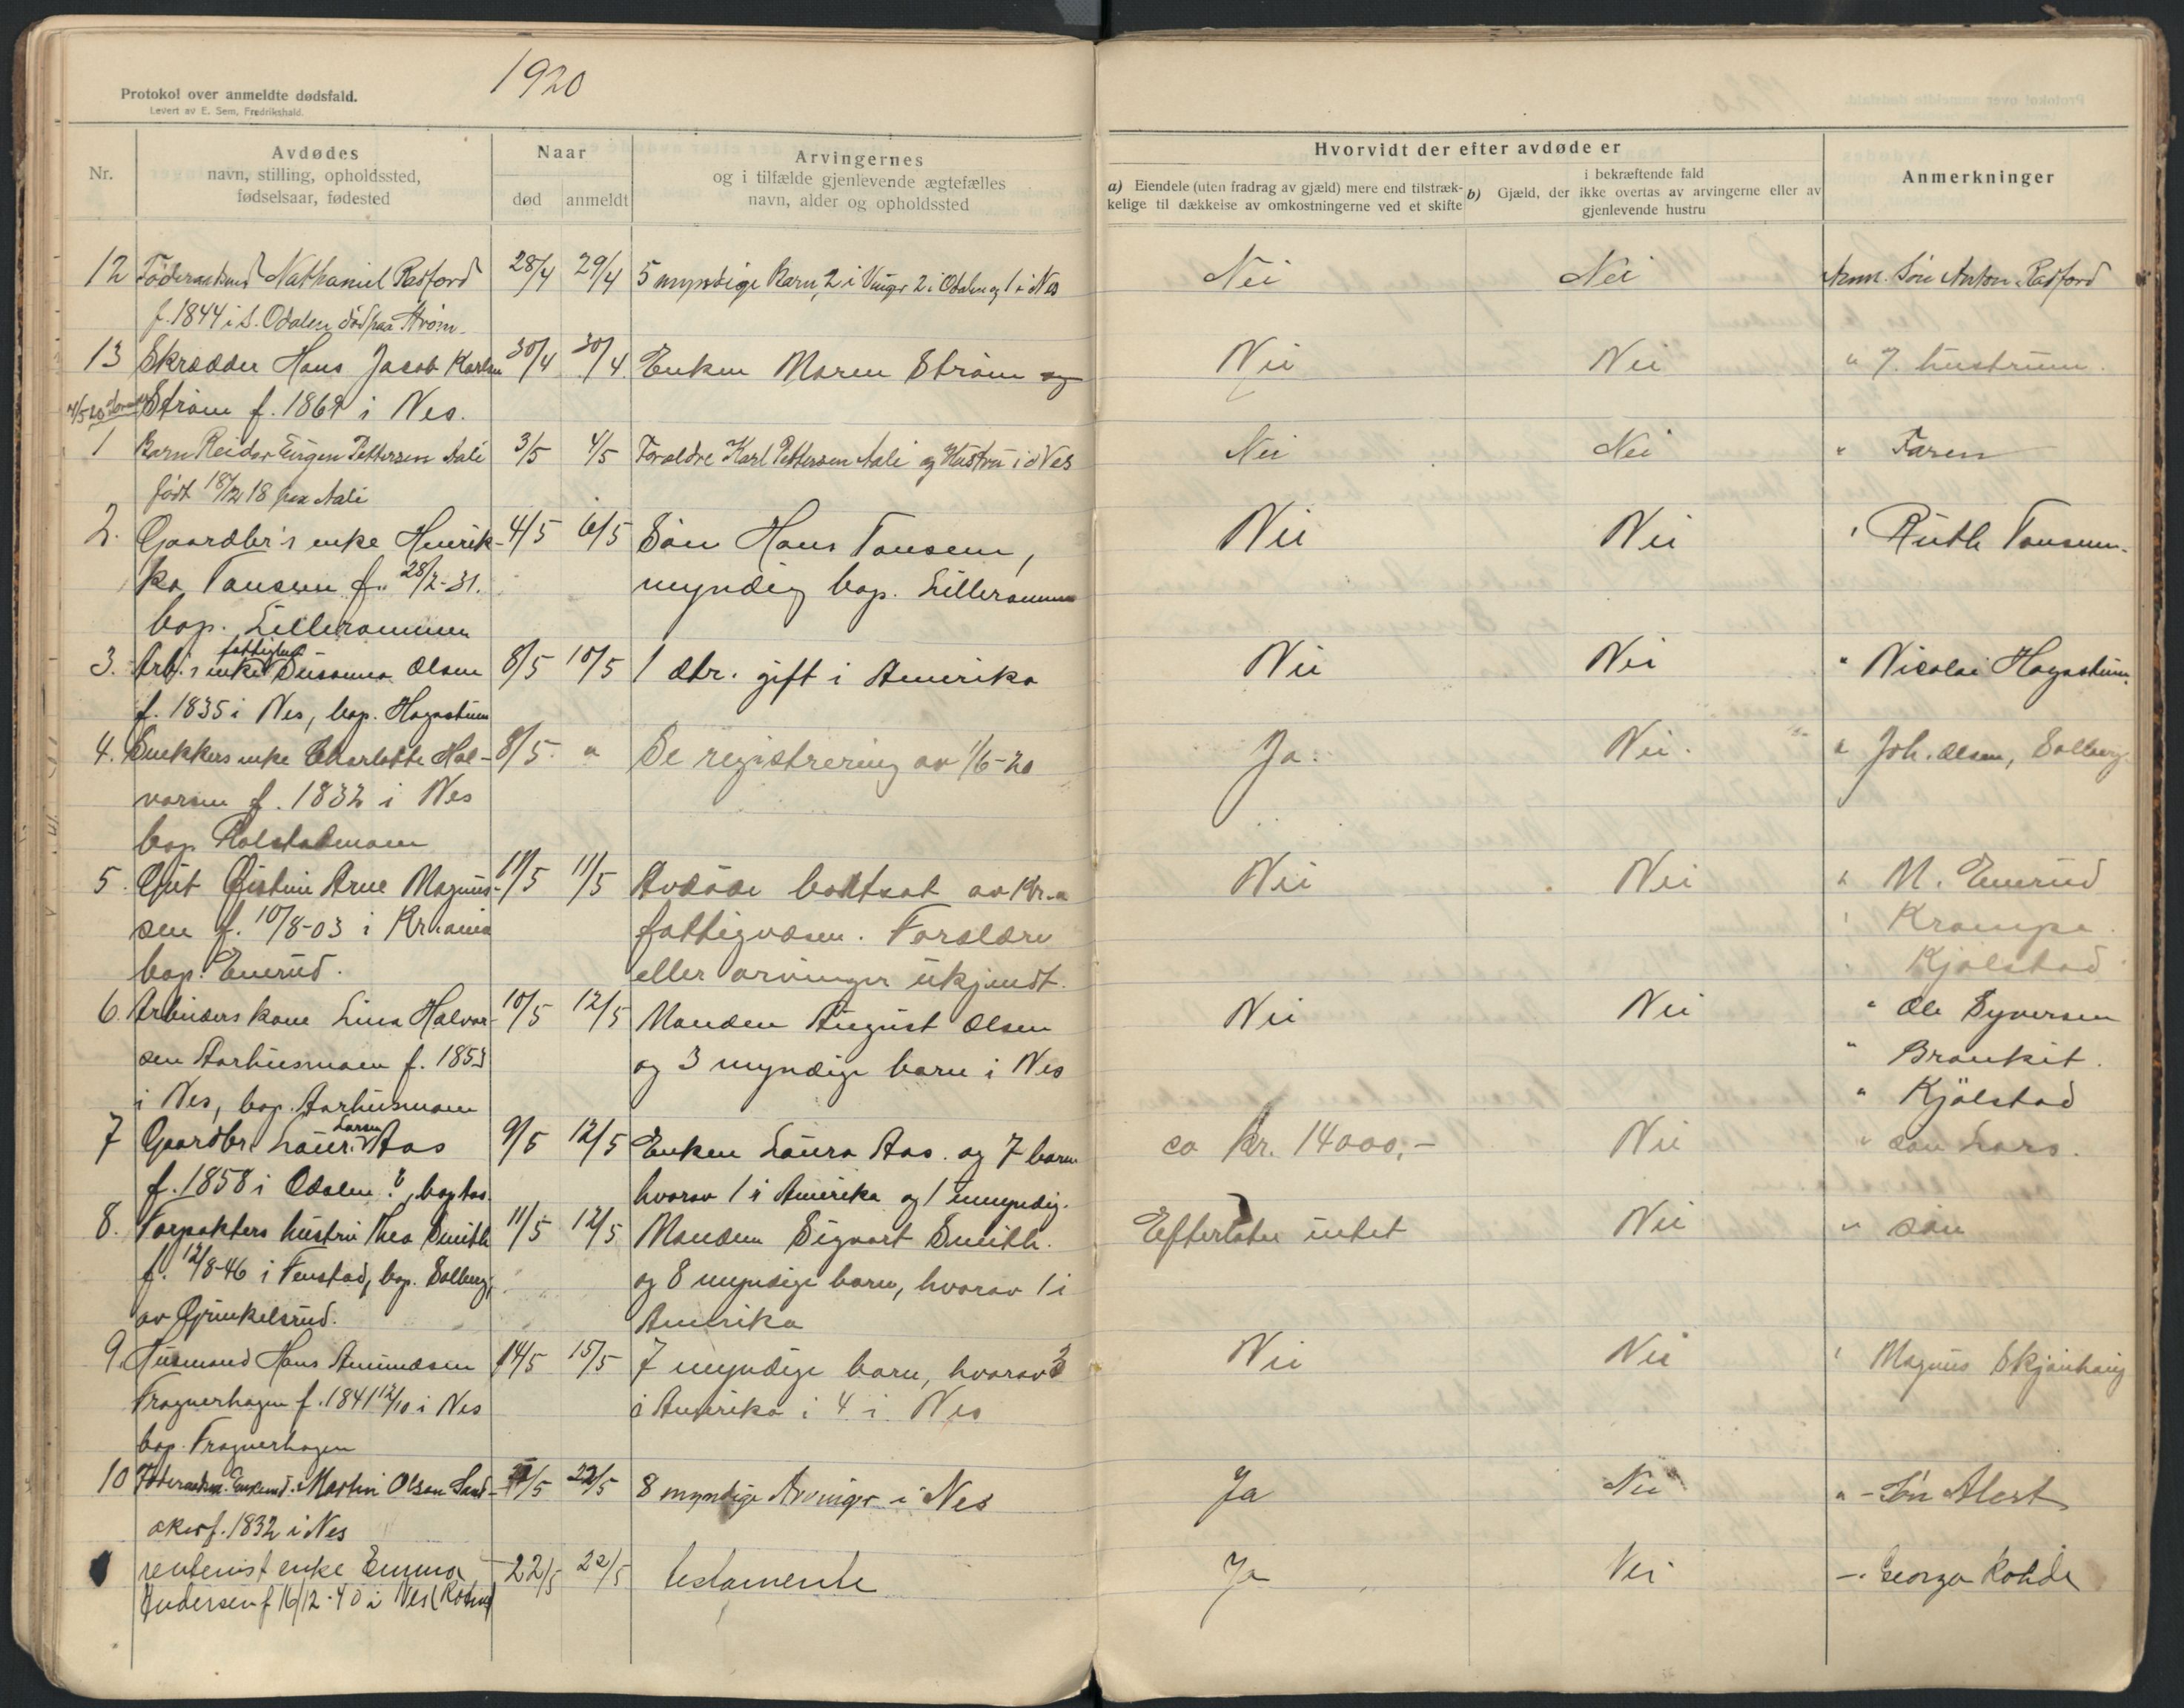 1920
Protokol over anmeldte dødsfald.
Levert av E. Sem, Fredrikshald.
Nr.
Avdødes
navn, stilling, opholdssted,
fødselsaar, fødested
Naar
død anmeldt
Arvingernes
og i tilfælde gjenlevende ægtefælles
navn, alder og opholdssted
Hvorvidt der efter avdøde er
a) Eiendele (uten fradrag av gjæld) mere end tilstræk-
kelige til dækkelse av omkostningerne ved et skifte
i bekræftende fald
b) Gjæld, der ikke overtas av arvingerne eller av
gjenlevende hustru
Anmerkninger
12 Föderaadsmd Nathaniel Radford 28/4 29/4 5 myndige Barn, 2 i Vinger 2 i Odalen og 1 i Nes Nei Nei Anm. Søn Anton Radford
f. 1844 i S. Odalen död paa Strøm
13 Skrædder Hans Jacob Karlsen 30/4 30/4 Enken Maren Ström og Nei Nei " hustruen.
Ström f. 1869 i Nes.
4/5 20
1 Barn Reidar Eugen Pettersen Aali 3/5 4/5 Foraldre Karl Pettersen Aali og Hustru i Nes Nei Nei " Faren
født 18/2 18 paa Aali
2. Gaardbr's enke Henrik- 4/5 6/5 Sön Hans Tansem, Nei Nei " Ruth Tansem.
ka Tansem f. 28/2-31. myndig bop. Lillerammen
bop. Lillerammen
3. Arb.s enke fattiglem Susanna Olsen 8/5 10/5 1 dtr. gift i Amerika Nei Nei " Nicolai Hagastuen.
f. 1835 i Nes, bop. Hagastuen
4. Snekkers enke Charlotte Hal- 8/5 " Se registrering av 1/6-20 Ja. Nei. " Joh. Olsen, Solberg.
vorsen f. 1832 i Nes
bop. Rolstadmoen
5. Gut Öistein Arne Magnus- 11/5 11/5 Avdöde bortsat av Kr.a Nei Nei " M. Enerud
sen f. 10/8-03 i Kr.ania fattigvæsen. Forældre " Krampe.
bop. Enerud. eller arvinger ukjendt. " Kjölstad
6. Arbeiders kone Lina Halvor- 10/5 12/5 Manden August Olsen Nei Nei " Ole Syversen
sen Aarhusmoen f. 1853 og 3 myndige barn i Nes " Bronkit.
i Nes, bop. Aarhusmoen " Kjölstad
7 Gaardbr. Laur. Larsen Aas 9/5 12/5 Enken Laura Aas. og 7 barn ca kr. 14000,- Nei " sön Lars.
f. 1858 i Odalen?, bop Aas. hvorav 1 i Amerika og 1 umyndig.
8. Forpakters hustru Thea Smith 11/5 12/5 Manden Sigvart Smith. Efterlater intet Nei " sön
f. 12/8-46 i Fenstad, bop. Solberg, og 8 myndige barn, hvorav 1 i
av Gjunkelsrud. Amerika
9. Husmand Hans Amundsen 14/5 15/5 7 myndige barn, hvorav 3 Nei Nei " Magnus Skjönhaug
Frognerhagen f. 1841 12/10 i Nes i Amerika i 4 i Nes
bop. Frognerhagen
10 Föderaadsm. Enkemd. Martin Olsen Sand- 21/5 22/5 8 myndige Arvinger i Nes Ja Nei " - Sön Albert
aker f. 1832 i Nes
rentenist enke Emma 22/5 22/5 testamente Ja Nei -" Georga Rohde
Andersen f 16/12-40 i Nes